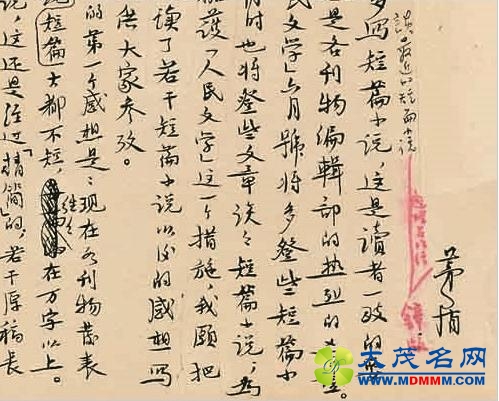 茅盾
談最近的短篇小说
多写短篇小说,这是读者一致的要
是各刊物编輯部的热烈的
民文学」六月號将多登些短篇小
时也将登些文章谈谈短篇小说,为
護「人民文学」这一个措施,我願把
读了若干短篇小说以后的感想写
供大家参攷。
的第一个感想是:现在各刊物發表
短篇大都不短,往往在万字以上。
说,这还是经过「精简」的,若干原稿長
大茂名网
WWW.MDMMM.COM